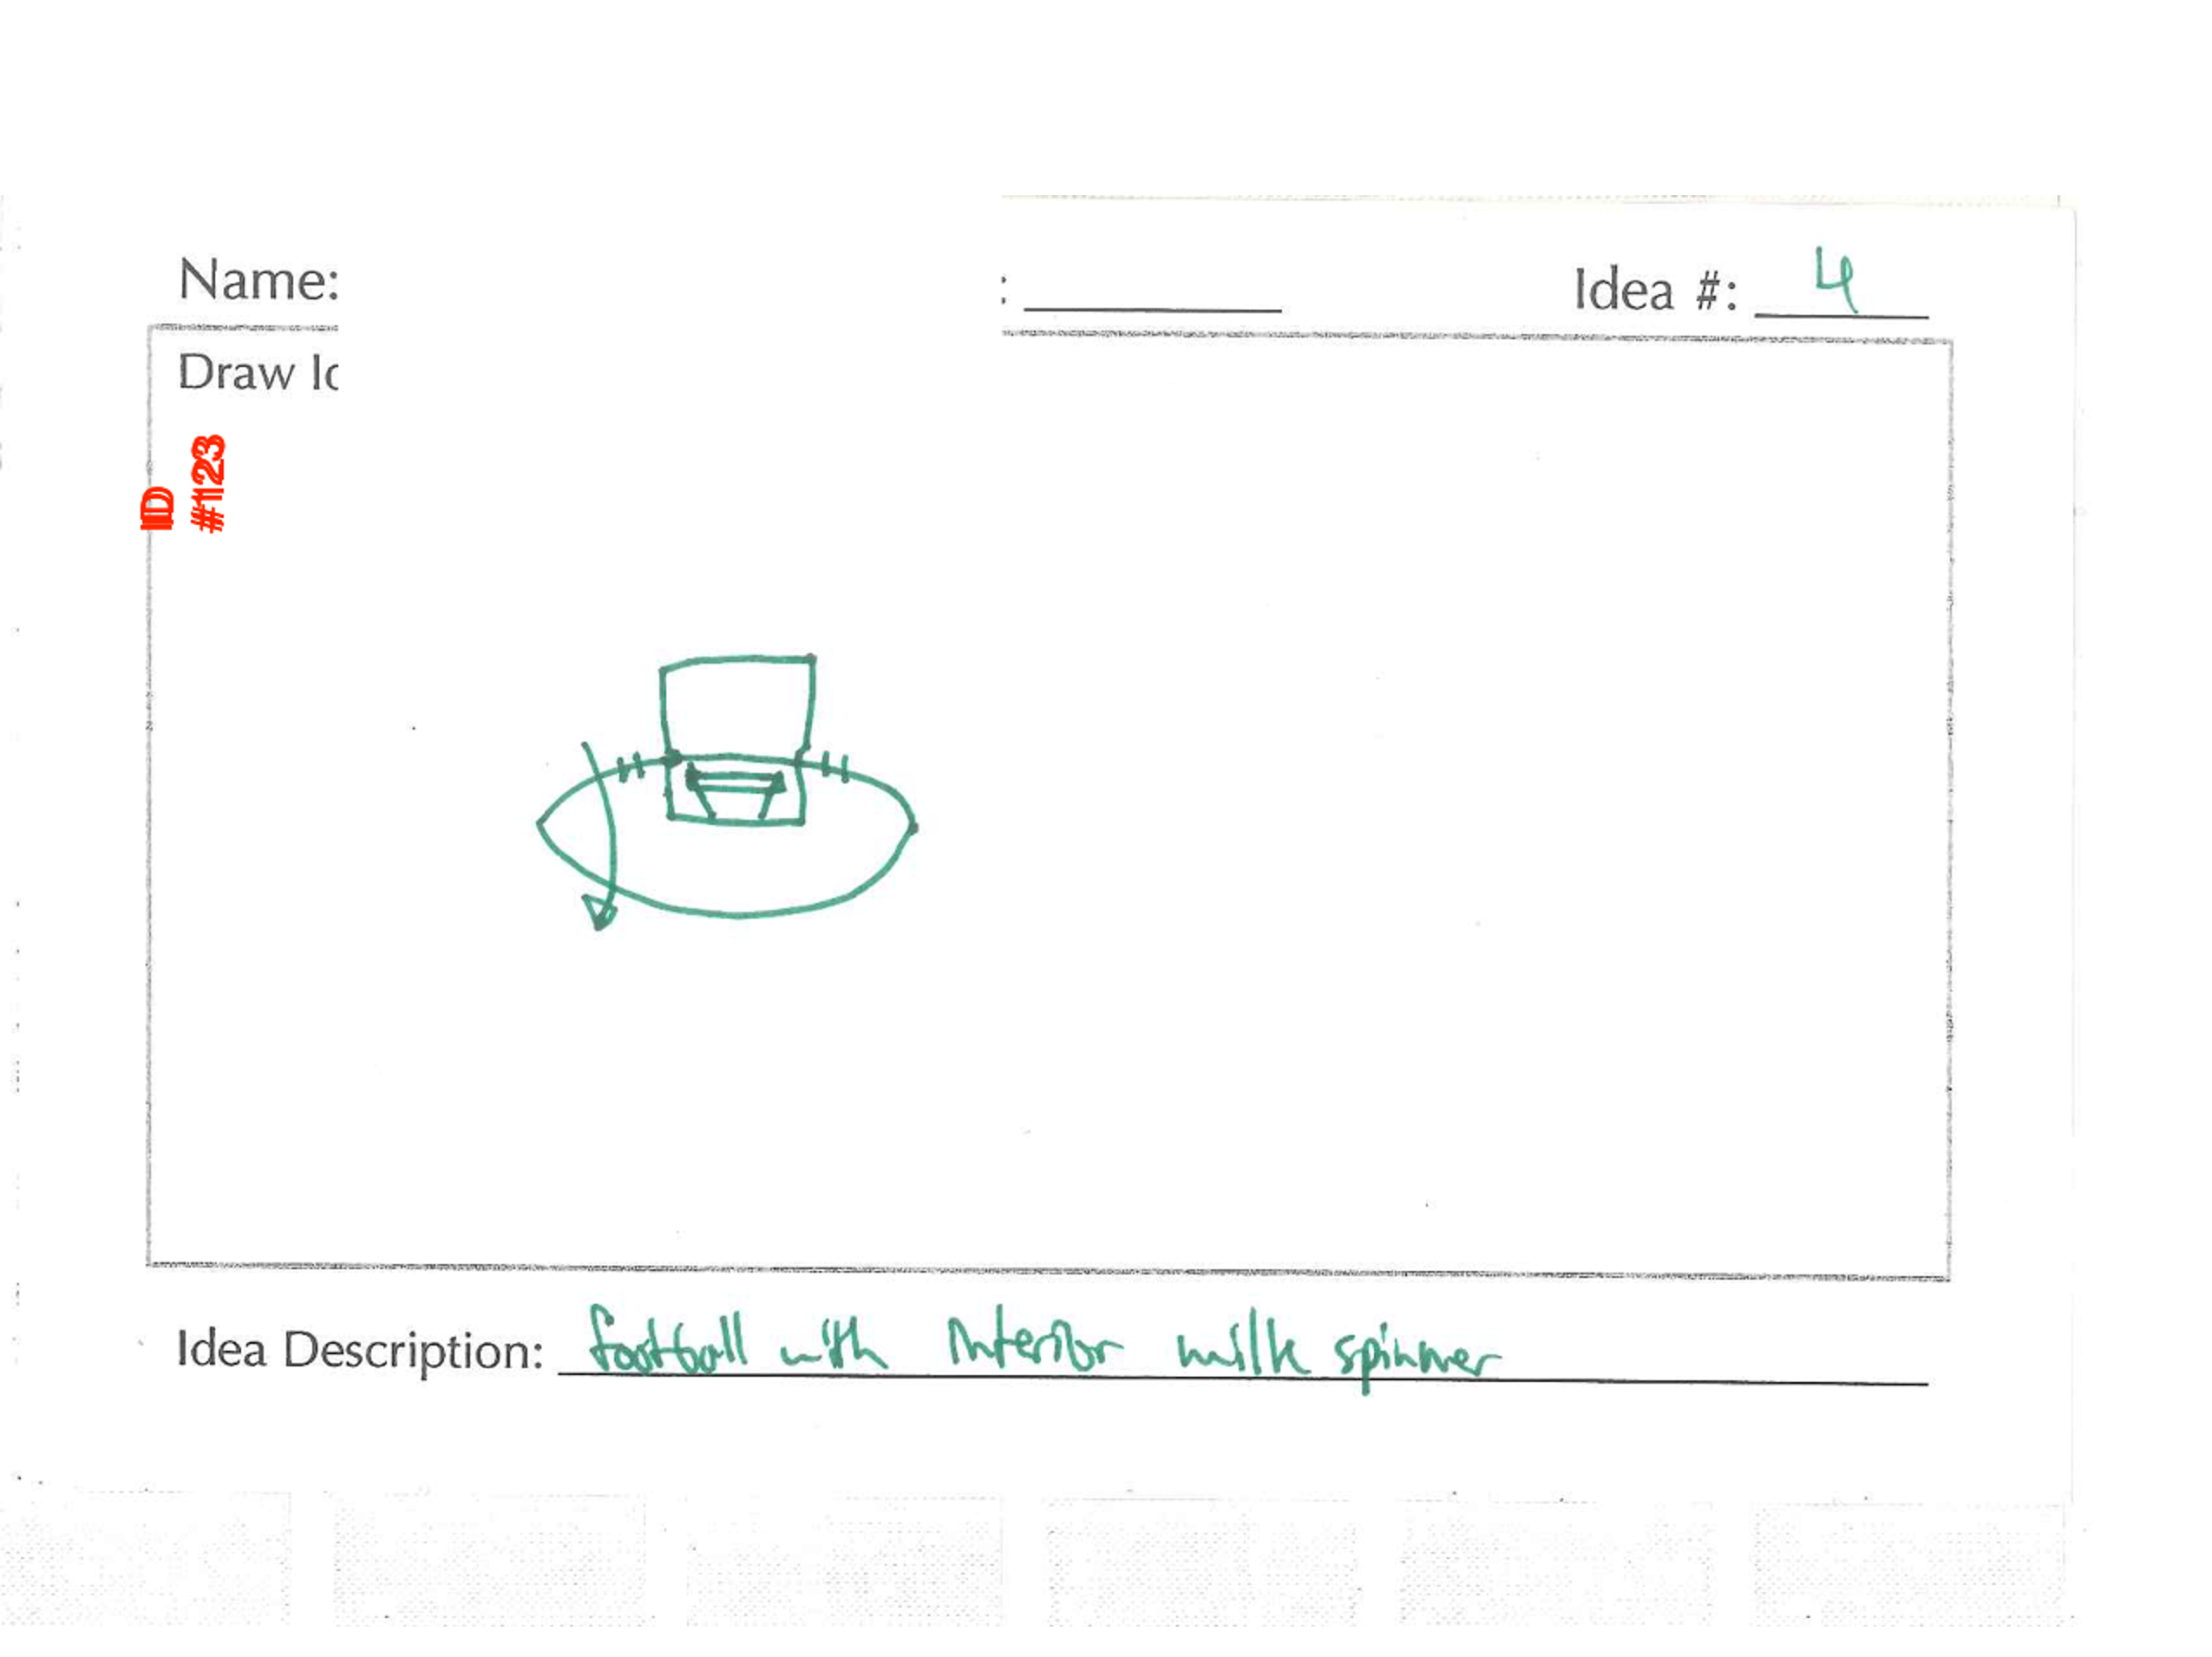 Name: : Idea #: 4
Draw Id
ID
#1123
Idea Description: football with interior milk spinner